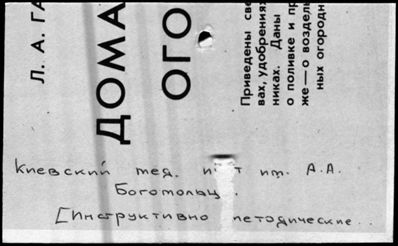 Л. А. ГА
ДОМА
ОГО
Приведены све
вах, удобрениях
никах. Даны
о поливке и пр
же — о воздель
ных огородн
Киевский мед. и т им. А.А.
Богомольц.
[Инструктивно методические..